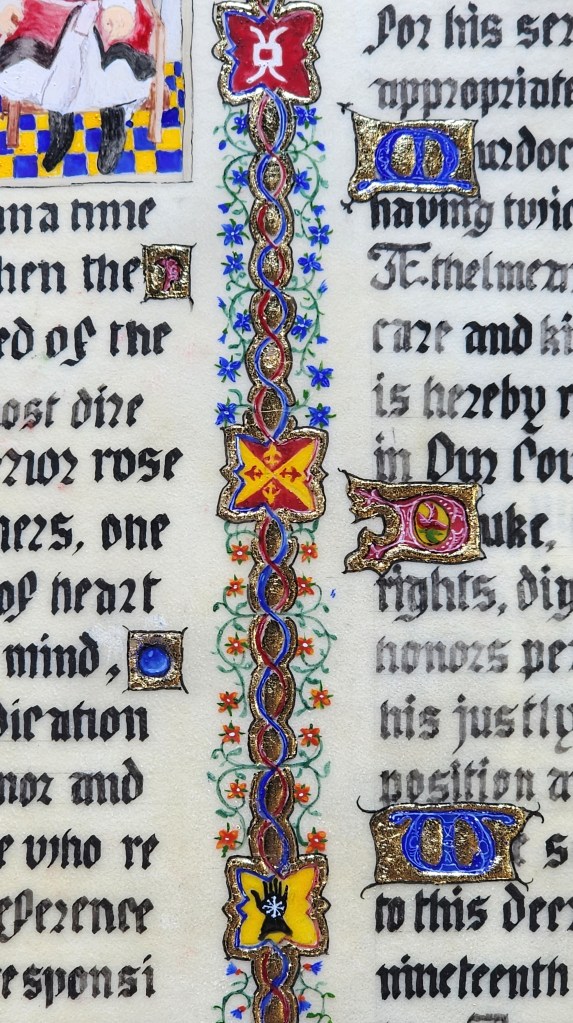 in a time
hen the
ed of the
ost dire
rrior rose
hers, one
of heart
mind,
dication
nor and
e who re
eference
responsi
For his ser
appropriate
Murdoc
having twic
Æthelmear
care and ki
is hereby r
in Our Cou
Duke,
rights, dig
honors per
his justly
position a
We s
to this dee
nineteenth